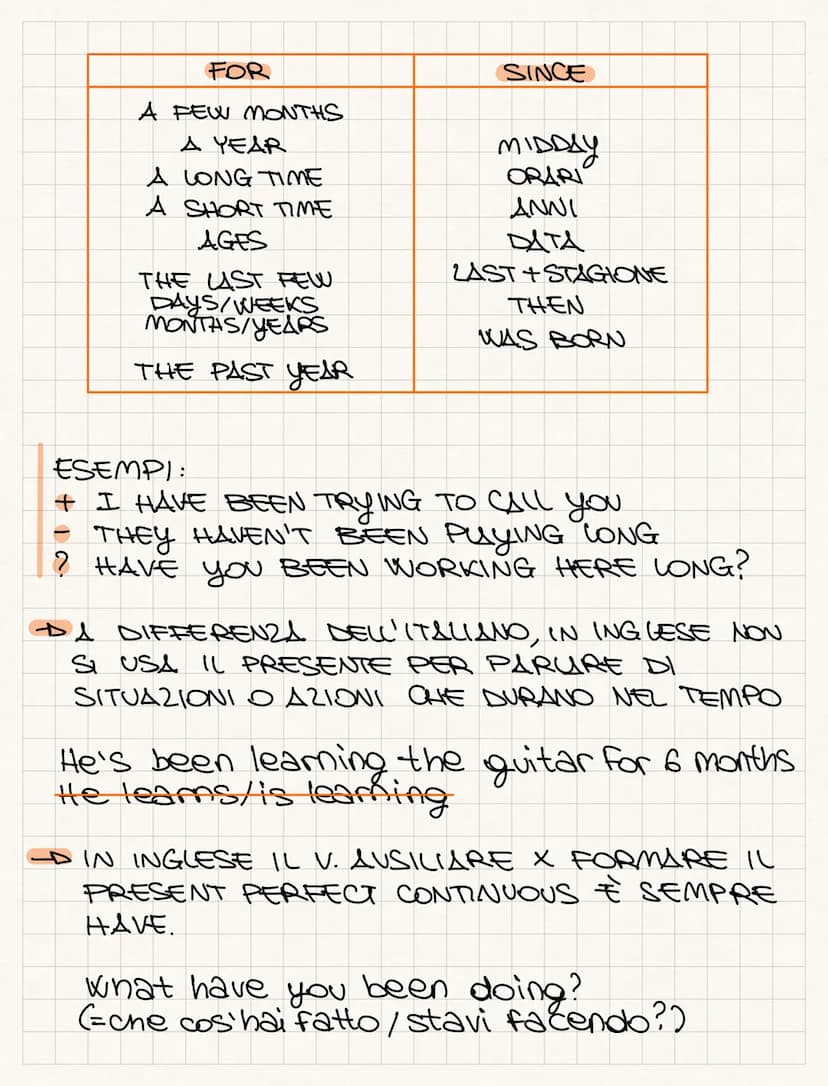 FOR
SINCE
A FEW MONTHS
A YEAR
A LONG TIME
A SHORT TIME
AGES
THE LAST FEW
DAYS/WEEKS
MONTHS/YEARS
THE PAST YEAR
MIDDAY
ORARI
ANNI
DATA
LAST + STAGIONE
THEN
WAS BORN
ESEMPI:
+ I HAVE BEEN TRYING TO CALL YOU
- THEY HAVEN'T BEEN PLAYING LONG
? HAVE YOU BEEN WORKING HERE LONG?
→ A DIFFERENZA DELL'ITALIANO, IN INGLESE NON
SI USA IL PRESENTE PER PARLARE DI
SITUAZIONI O AZIONI CHE DURANO NEL TEMPO
He's been learning the guitar for 6 months
He learns/is learning
→ IN INGLESE IL V. AUSILIARE X FORMARE IL
PRESENT PERFECT CONTINUOUS È SEMPRE
HAVE.
What have you been doing?
(=che cos'hai fatto/stavi facendo?)